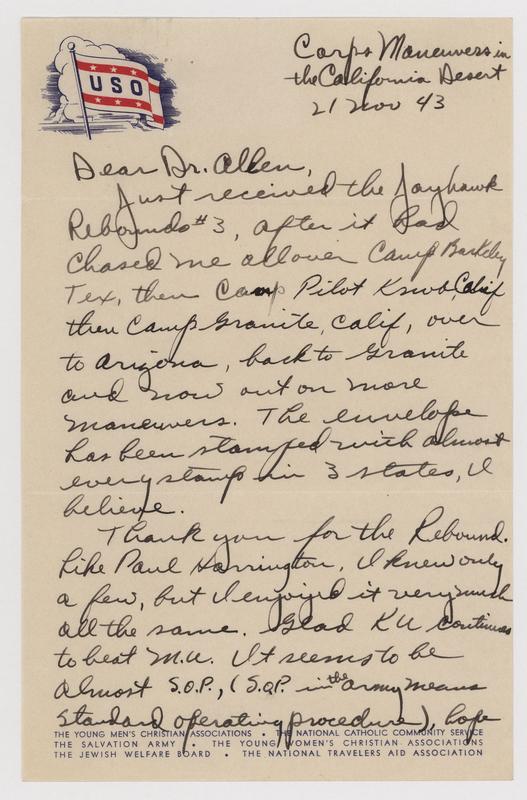 USO
Corps Maneuvers in
the California Desert
21 Nov 43
Dear Dr. Allen,
Just received the Jayhawk
Rebounds #3, after it had
chased me all over Camp Barkeley
Tex, then Camp Pilot Knob, Calif
then Camp Granite, Calif, over
to Arizona, back to Granite
and now out on more
maneuvers. The envelope
has been stamped with almost
every stamp in 3 states, I
believe.
Thank you for the Rebound.
Like Paul Harrington, I knew only
a few, but I enjoyed it very much
all the same. Glad KU continues
to beat M.U. It seems to be
almost S.O.P., (S.O.P. in the army means
standard operating procedure), hope
THE YOUNG MEN'S CHRISTIAN ASSOCIATIONS • THE NATIONAL CATHOLIC COMMUNITY SERVICE
THE SALVATION ARMY • THE YOUNG WOMEN'S CHRISTIAN ASSOCIATIONS
THE JEWISH WELFARE BOARD • THE NATIONAL TRAVELERS AID ASSOCIATION